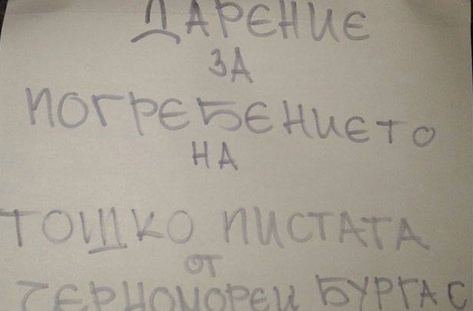 ДАРЕНИЕ
ЗА
ПОГРЕБЕНИЕТО
НА
ТОШКО ПИСТАТА
ОТ
ЧЕРНОМОРЕЦ БУРГАС